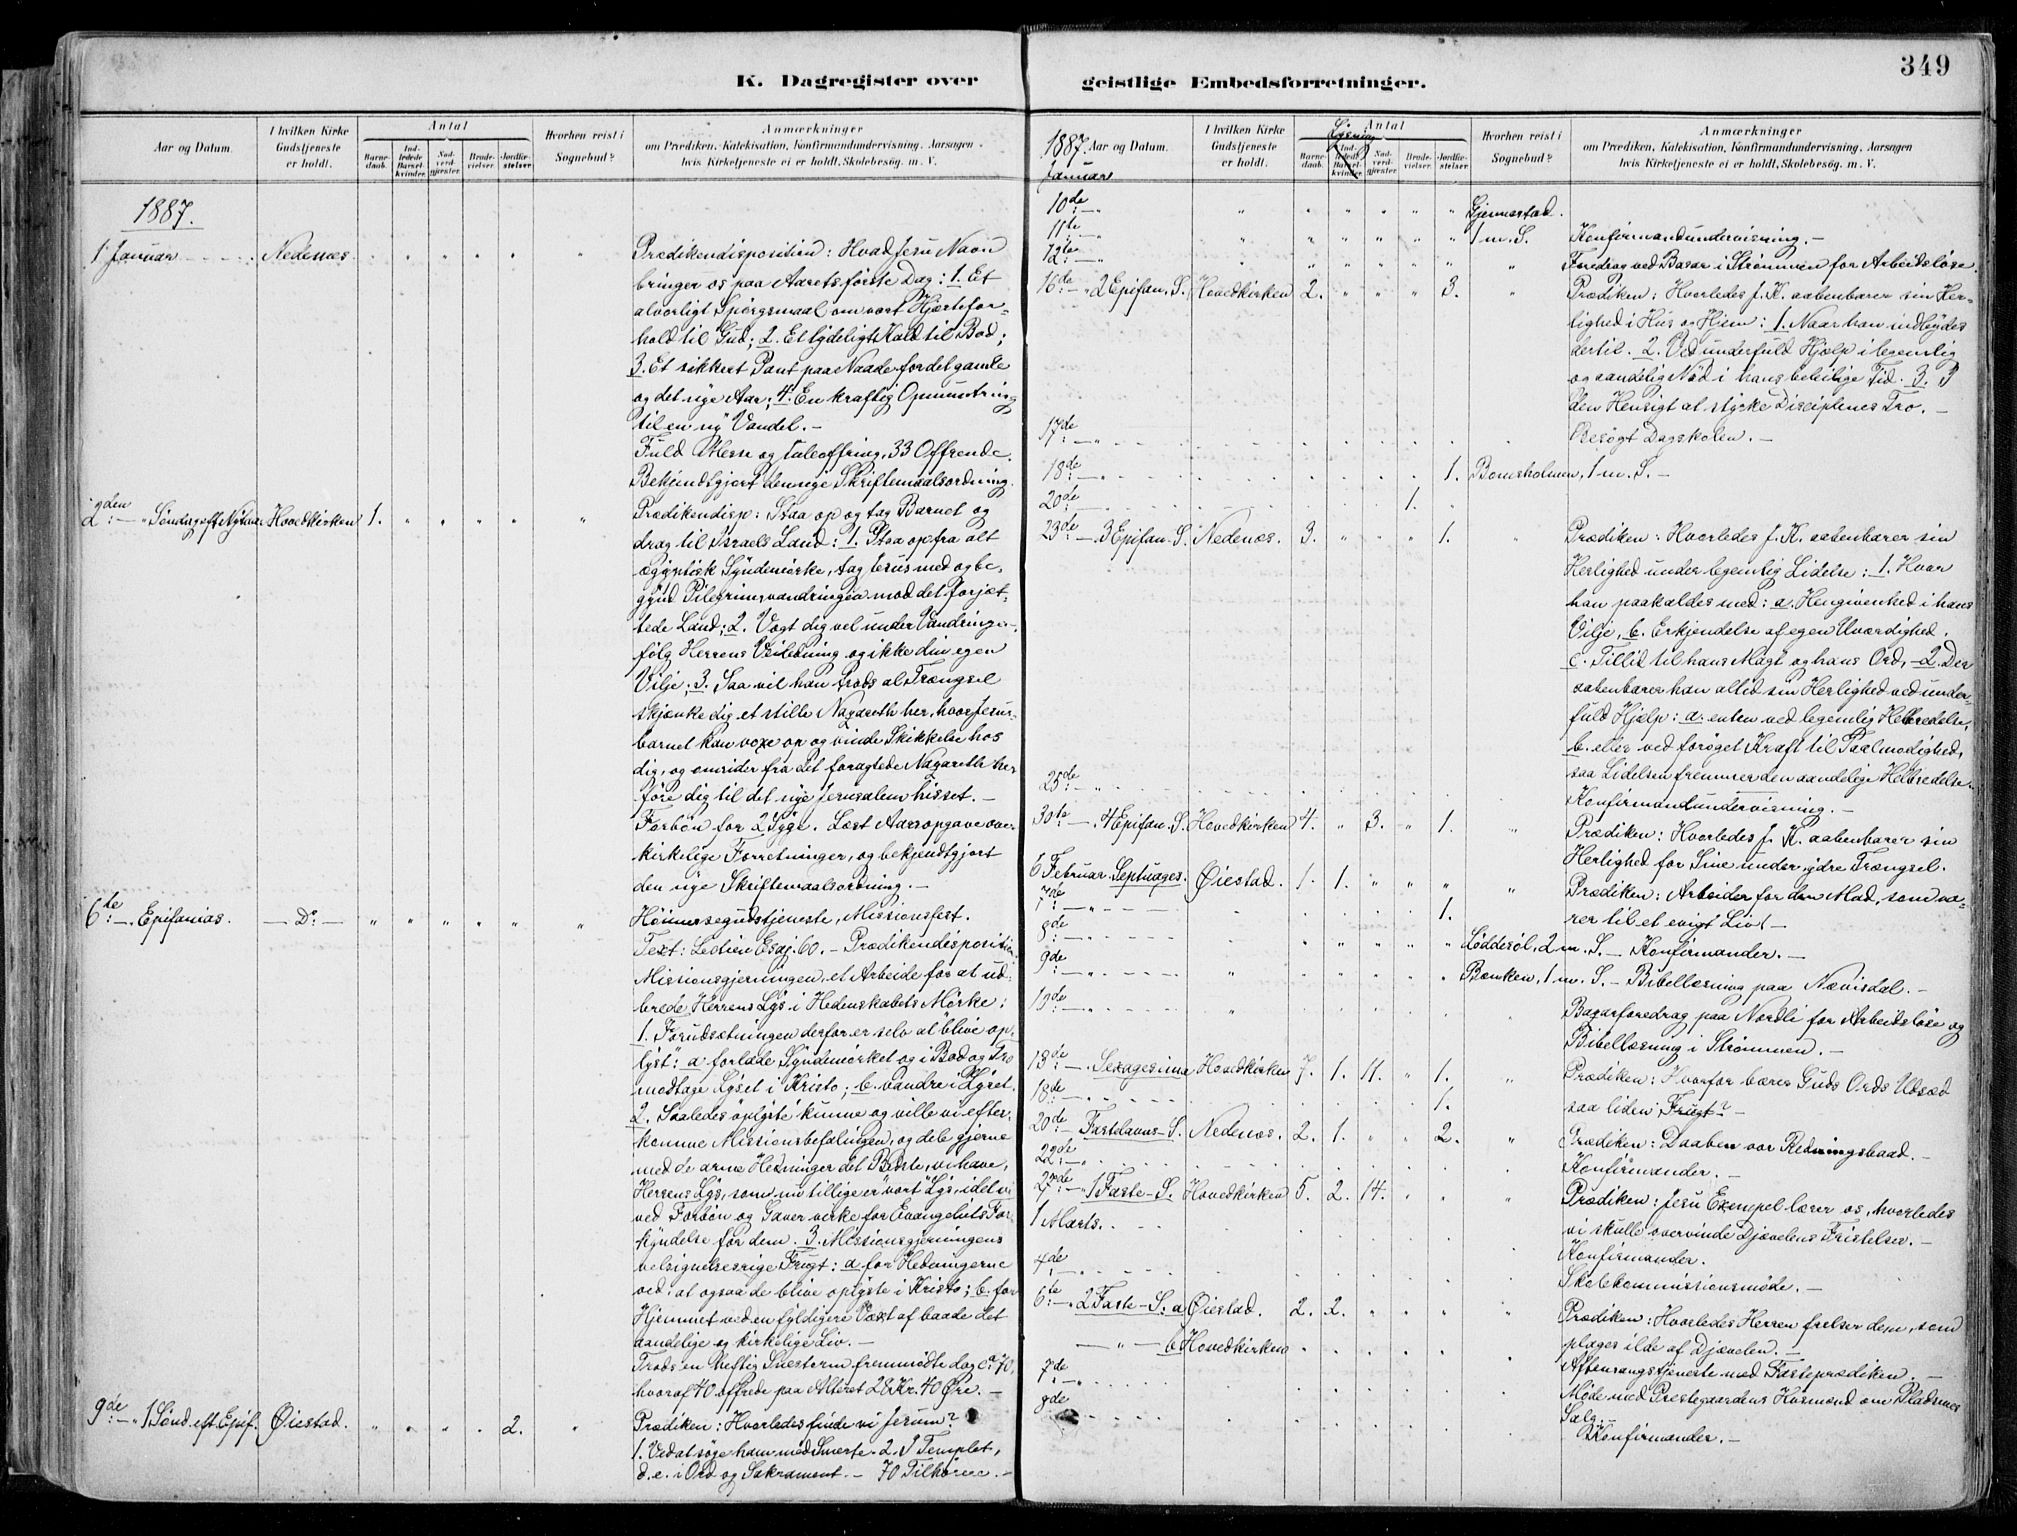 K. Dagregister over geistlige Embedsforretninger.
349
Aar og Datum.
I hvilken Kirke Gudstjeneste er holdt.
Antal
Barnedaab.
Indledede Barselkvinder.
Nadverdgjæster.
Brudevielser.
Jordfæstelser.
Hvorhen reist i Sognebud?
Anmærkninger
om Prædiken, Katekisation, Konfirmandundervisning, Aarsagen
hvis Kirketjeneste ei er holdt, Skolebesøg, m. V.
1887.
1 Januar Nedenæs. Prædikendisposition: Hvad Jesu Navn
bringer os paa Aarets første Dag: 1. Et
alvorligt Spørgsmaal om vort Hjertefor-
hold til Gud; 2. Et tydeligt Kald til Bod;
3. Et sikkert Pant paa Naade for det gamle
og det nye Aar; 4. En kraftig Opmuntring
til en ny Vandel. —
Fuld Messe og Taleoffring. 33 Offrende.
Bekjendtgjort den nye Skriftemaalsordning.
2den — Søndag eft Nytaar Hovedkirken 1. Prædikendisp: Staa op og tag Barnet og
drag til Israels Land: 1. Staa op fra alt
ægyptisk Syndemørke, tag Jesus med og be-
gynd Pilegrimsvandringen mod det forjæt-
tede Land; 2. Vogt dig vel under Vandringen,
følg Herrens Veiledning og ikke din egen
Vilje; 3. Saa vil han trods al Trængsel
skjænke dig et stille Nazareth her, hvor Jesus-
barnet kan voxe op og vinde Skikkelse hos
dig, og omsider fra det foragtede Nazareth her
føre dig til det nye Jerusalem hisset. —
Forbøn for 2 Syge. Læst Aarsopgave over
kirkelige Forretninger, og bekjendtgjort
den nye Skriftemaalsordning. —
6te — Epifanias. — Do — Høimessegudstjeneste, Missionsfest.
Text: Lectien Esaj. 60. — Prædikendisposition:
Missionsgjerningen, et Arbeide for at ud-
brede Herrens Lys i Hedenskabets Mørke:
1. Forudsætningen derfor er selv at "blive op-
lyst": a forlade Syndemørket og i Bod og Tro
modtage Lyset i Kristo; b. vandre i Lyset.
2. Saaledes "oplyste" kunne og ville vi efter-
komme Missionsbefalingen, og dele gjerne
med de arme Hedninger det Bedste, vi have,
Herrens Lys, som nu tillige er "vort" Lys, idet vi
ved Forbøn og Gaver virke for Evangeliets For-
kyndelse for dem. 3. Missionsgjerningens
velsignelsesrige Frugt: a for Hedningerne
ved: at ogsaa de blive oplyste i Kristo; b. for
Hjemmet ved en fyldigere Væxt af baade det
aandelige og kirkelige Liv. —
Trods en heftig Snestorm fremmødte dog ca 70,
hvoraf 40 offrede paa Alteret 28 Kr. 40 Øre. —
9de — 1 Sønd. eft. Epif. Øiestad. 2. Prædiken: Hvorledes finde vi Jesum?
1. Ved at søge ham med Smerte. 2. I Templet,
d.e. i Ord og Sakrament. — 70 Tilhørere. —
1887. Aar og Datum.
Januar
I hvilken Kirke Gudstjeneste er holdt.
Antal
Barnedaab.
Indledede Barselkvinder.
Nadverdgjæster.
Brudevielser.
Jordfæstelser.
Hvorhen reist i Sognebud?
Anmærkninger
om Prædiken, Katekisation, Konfirmandundervisning, Aarsagen
hvis Kirketjeneste ei er holdt, Skolebesøg, m. V.
10de — Gjennestad.
11te — 1 m. S. Konfirmandundervisning. —
12te — Foredrag ved Basar i Strømmen for Arbeidsløse.
16de — 2 Epifan. S. Hovedkirken 2. 3. Prædiken: Hvorledes J. K. aabenbarer sin Her-
lighed i Hus og Hjem: 1. Naar han indbydes
dertil. 2. Ved underfuld Hjælp i legemlig
og aandelig Nød i hans beleilige Tid. 3. I
den Hensigt at styrke Disciplenes Tro. —
17de — Besøgt Dagskolen. —
18de — 1. Bomsholmen, 1 m. S. —
20de — 1.
23de — 3 Epifan. S. Nedenæs. 3. 1. Prædiken: Hvorledes J. K. aabenbarer sin
Herlighed under legemlig Lidelse: 1. Hvor
han paakaldes med: a. Hengivenhed i hans
Vilje, b. Erkjendelse af egen Uværdighed.
c. Tillid til hans Magt og hans Ord, — 2. Der
aabenbarer han altid sin Herlighed ved under-
fuld Hjælp: a. enten ved legemlig Helbredelse,
b. eller ved forøget Kraft til Taalmodighed,
saa Lidelsen fremmer den aandelige Helbredelse.
25de — Konfirmandundervisning. —
30te — 4 Epifan. S. Hovedkirken 4. 3. 1. Prædiken: Hvorledes J. K. aabenbarer sin
Herlighed for Sine under ydre Trængsel.
6 Februar Septuages. Øiestad. 1. 1. Prædiken: Arbeider for den Mad, som va-
rer til et evigt Liv! —
7de — 1.
8de — Løddesøl, 2 m. S. — Konfirmander. —
9de — Bænken, 1 m. S. — Bibellæsning paa Nævisdal. —
Bazarforedrag paa Nordli for Arbeidsløse og
Bibellæsning i Strømmen. —
13de — Sexagesima Hovedkirken 7. 1. 11. 1. Prædiken: Hvorfor bærer Guds Ords Udsæd
saa liden Frugt? —
18de — 1.
20de — Fastelavns-S. Nedenæs. 2. 1. 2. Prædiken: Daaben vor Redningsbaad. —
22de — Konfirmander. —
27de — 1 Faste-S. Hovedkirken 5. 2. 14. Prædiken: Jesu Exempel lærer os, hvorledes
vi skulle overvinde Djævelens Fristelser. —
1 Marts. Konfirmander.
4de — Skolekommissionsmøde. —
6te — 2 Faste-S: a Øiestad. 2. 2. Prædiken: Hvorledes Herren frelser dem, som
plages ilde af Djævelen. —
— " — b Hovedkirken Aftensangstjeneste med Fasteprædiken. —
7de — Møde med Prestegaardens Husmænd om Pladsenes
Salg. —
8de — Konfirmander. —